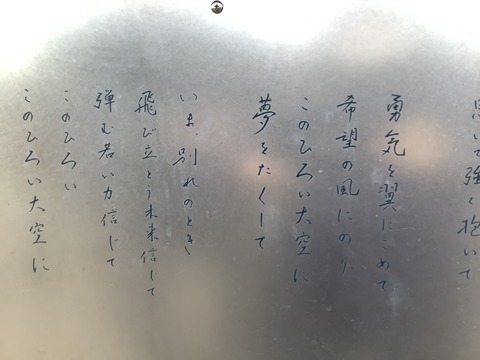 思いで強く抱いて
勇気を翼にこめて
希望の風にのり
このひろい大空に
夢をたくして
いま、別れのとき
飛び立とう未来信じて
弾む若い力信じて
このひろい
このひろい大空に